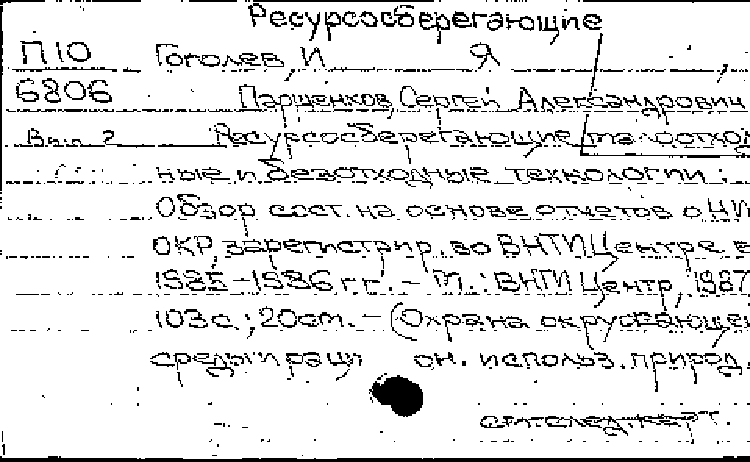 Ресурсосберегающие
П10 Гоголев, И Я
6806 Паршенков, Сергей Александрович
Вып. 2 Ресурсосберегающие малоотход
ные и безотходные технологии :
Обзор сост. на основе отчетов о НИ
ОКР, зарегистрир. во ВНТИЦентре в
1985-1986 гг. - М. : ВНТИЦентр, 1987
103 с ; 20 см. - (Охрана окружающе
среды и раци он. использ. природ.